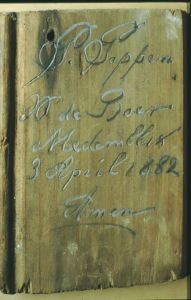 P. Seppen
K de Boer
Medemblik
3 April 1882
Amen